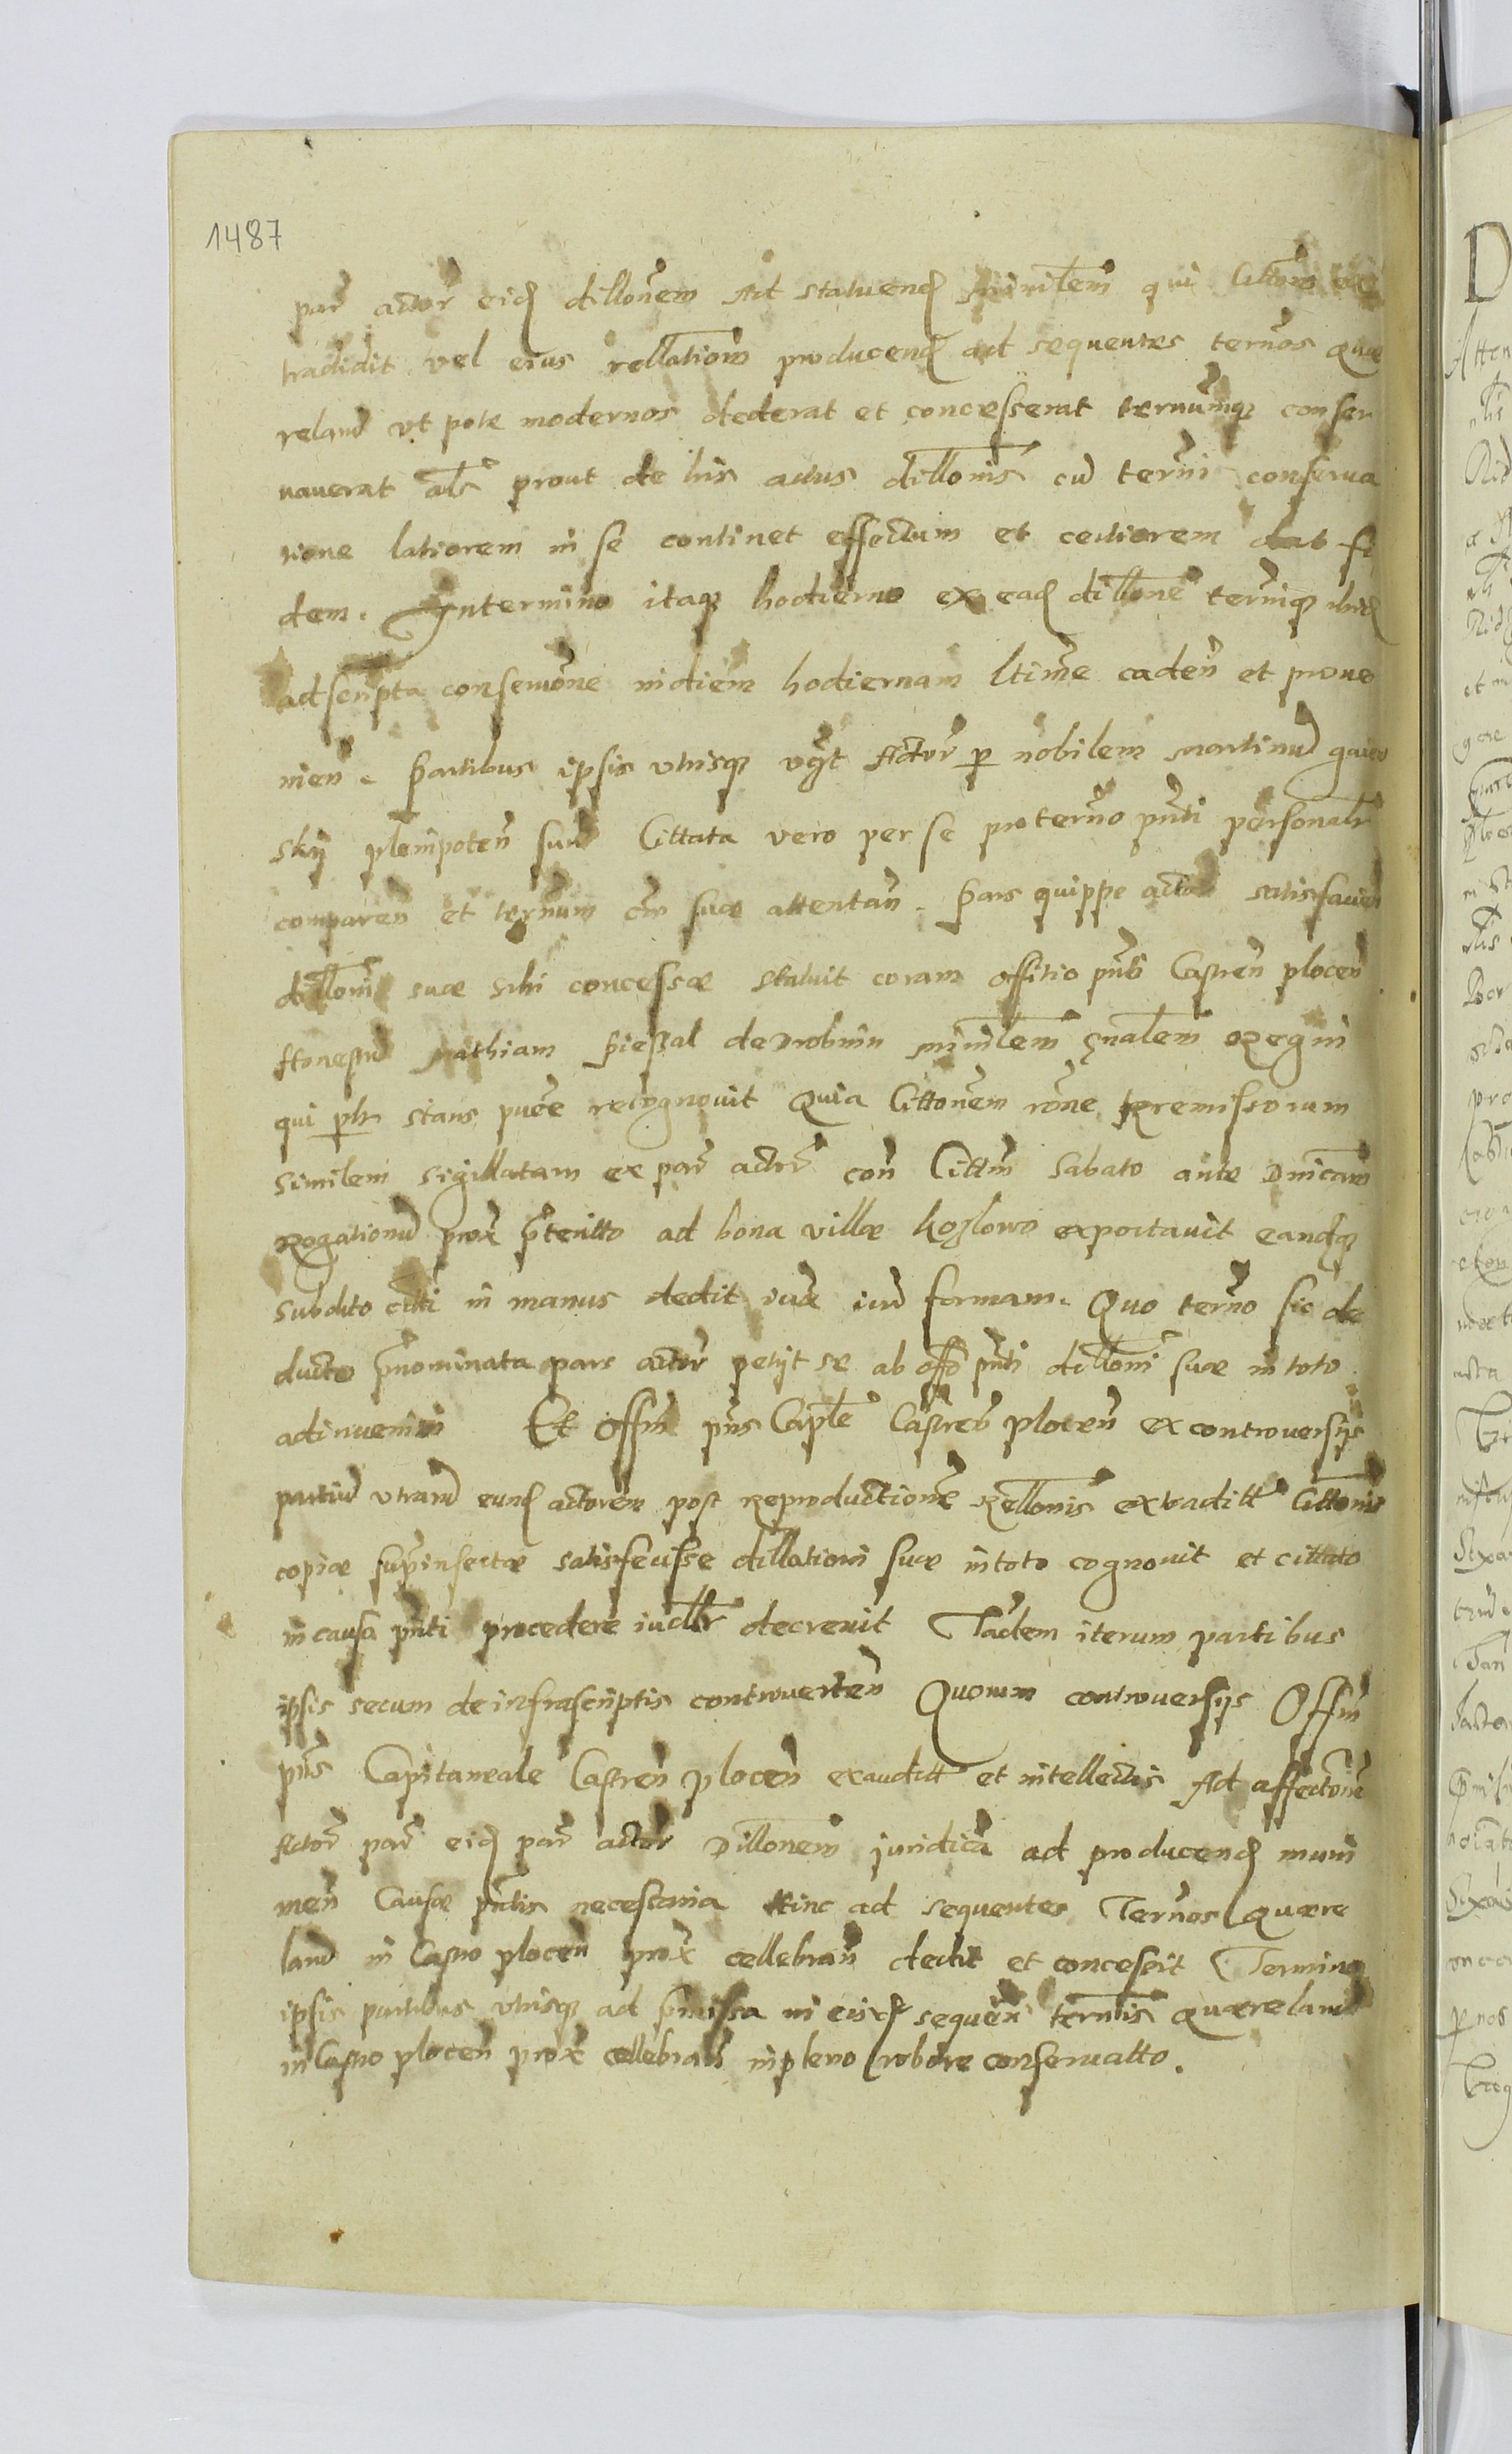 1487
par actor eid dillonem Ad statuend ministlem qui Cittom
tradidit vel eius rellationem producend ad sequentes ternos Quæ
reland vt pote modernos dederat et concesserat ternumque conser
vaverat als prout de his actus dillonis cu termi conserva
tione latiorem in se continet effectum et certiorem dat fi
dem. Intermino itaque hodierno ex ead dillone termique ibid
adscripta conservone indiem hodiernam ltime caden et prove
nien. Partibus ipsis vtrisque vgt Actor p nobilem Martinu
skij plenipoten suu Cittata vero per se pro termo pnti personalr
comparen et ternum cm suæ attentan. Pars quippe actor satisfacien
dilloni suæ sibi concessæ statuit coram offitio pnti Castren plocen
Honestu Mathiam de Drobnin minilem gnalem Regni
qui ph stans puree recognovit Quia Cittonem rone premissorum
similem sigillatam ex par actor con Cittm Sabato ante Dnicam
Rogationu prox pteritto ad bona villæ Kozlowo exportavit eandque
subdito citti in manus dedit iuxa iur formam. Quo termo sic de
ducto pnominata pars actor petijt se ab offo pnti dilloni suæ in toto
adinveniri Et Offm pns Caplе Castren plocen ex controversijs
partiu vtraru eund actorem post Reproductione Rellonis extraditt Cittonis
copiæ suprinsertæ satisfecisse dillationi suæ intoto cognovit et cittato
in causa pnti procedere iudlr decrevit Tadem iterum partibus
ipsis secum de infrascriptis controverten Quorum controversijs Offm
pns Capitaneale Castren plocen exauditt et intellectis Ad affectone
Actor par eid par actor Dillonem juridica ad producend muni
men Causæ pntis necessaria hinc ad sequentes Ternos Quære
land in Castro plocen prox cellebran dedit et concessit Termino
ipsis partibus vtrisque ad pmissa in eisd sequen ternis Quæreland
in Castro plocen prox cellebran inpleno robore conservatto.